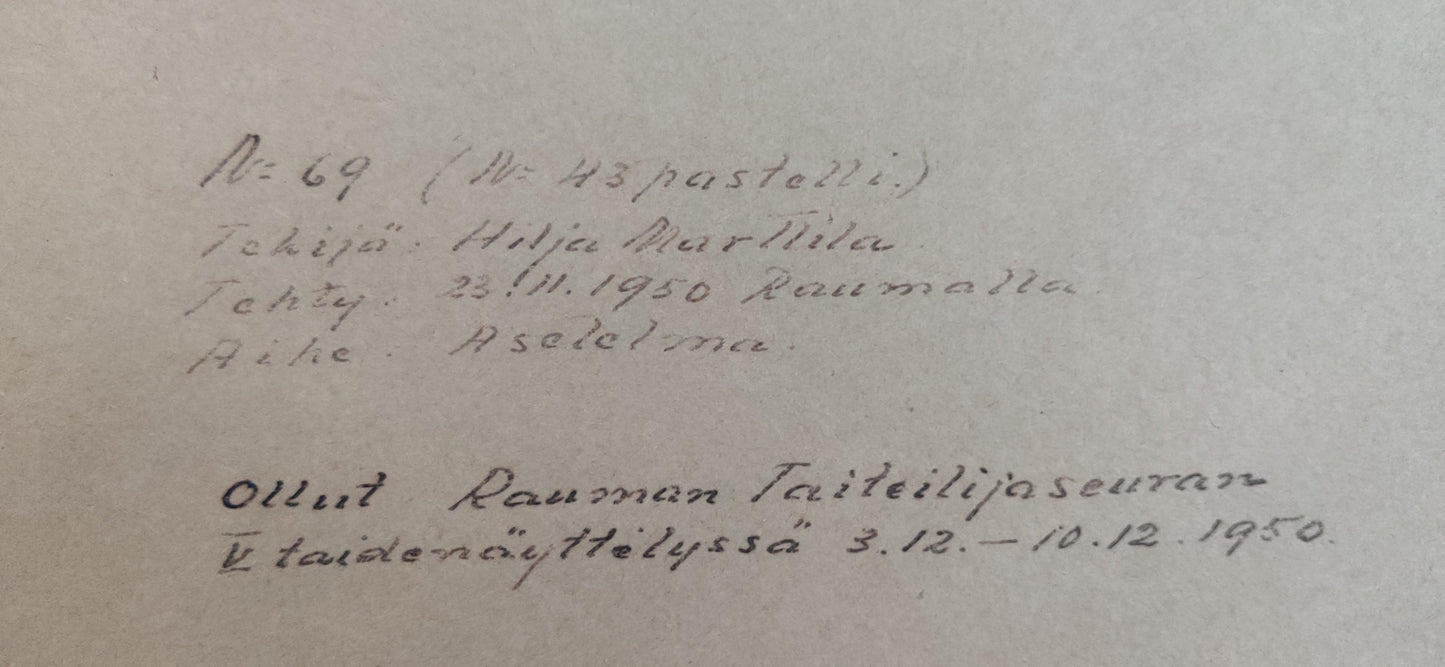 N:o 69 (N:o 43 pastelli.)
Tekijä: Hilja Marttila
Tehty: 23.11.1950 Raumalla.
Aihe: Asetelma.
Ollut Rauman Taiteilijaseuran
V taidenäyttelyssä 3.12.–10.12.1950.